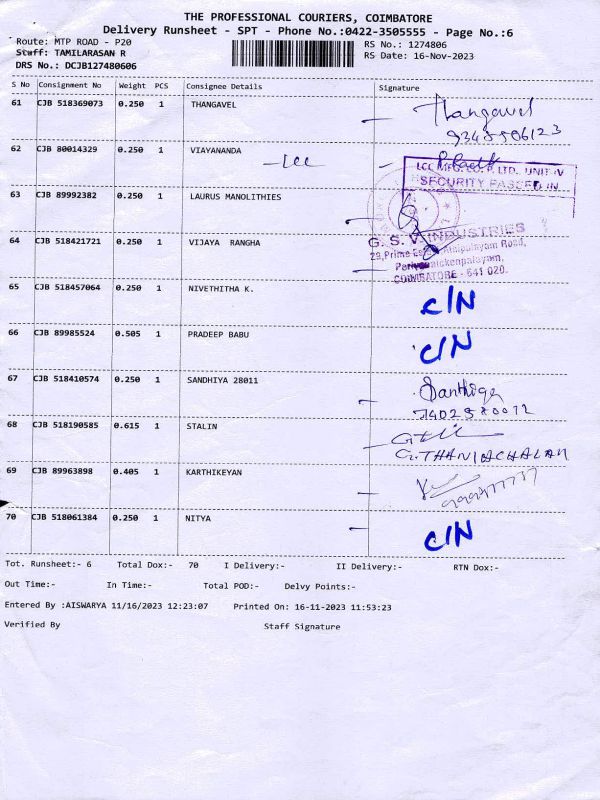 THE PROFESSIONAL COURIERS, COIMBATORE
Delivery Runsheet - SPT - Phone No.:0422-3505555 - Page No.:6
Route: MTP ROAD - P20
RS No.: 1274806
Staff: TAMILARASAN R
RS Date: 16-Nov-2023
DRS No.: DCJB127480606
S No Consignment No Weight PCS Consignee Details Signature
61 CJB 518369073 0.250 1 THANGAVEL Thangavel
62 CJB 80014329 0.250 1 VIAYANANDA
SECURITY PASSED IN
63 CJB 89992382 0.250 1 LAURUS MANOLITHIES
G. S. V. INDUSTRIES
64 CJB 518421721 0.250 1 VIJAYA RANGHA
COIMBATORE - 641 020.
65 CJB 518457064 0.250 1 NIVETHITHA K. C/N
66 CJB 89985524 0.505 1 PRADEEP BABU C/N
67 CJB 518410574 0.250 1 SANDHIYA 28011
68 CJB 518190585 0.615 1 STALIN
69 CJB 89963898 0.405 1 KARTHIKEYAN
70 CJB 518061384 0.250 1 NITYA C/N
Tot. Runsheet:- 6 Total Dox:- 70 I Delivery:- II Delivery:- RTN Dox:-
Out Time:- In Time:- Total POD:- Delvy Points:-
Entered By :AISWARYA 11/16/2023 12:23:07 Printed On: 16-11-2023 11:53:23
Verified By Staff Signature